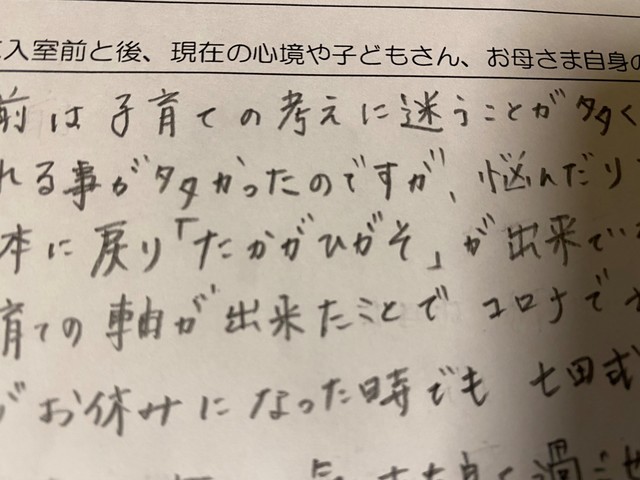 入室前と後、現在の心境や子どもさん、お母さま自身の
前は子育ての考えに迷うことが多く
れる事が多かったのですが、悩んだり
本に戻り「たかがひがそ」が出来てい
育ての軸が出来たことでコロナで
がお休みになった時でも 七田式